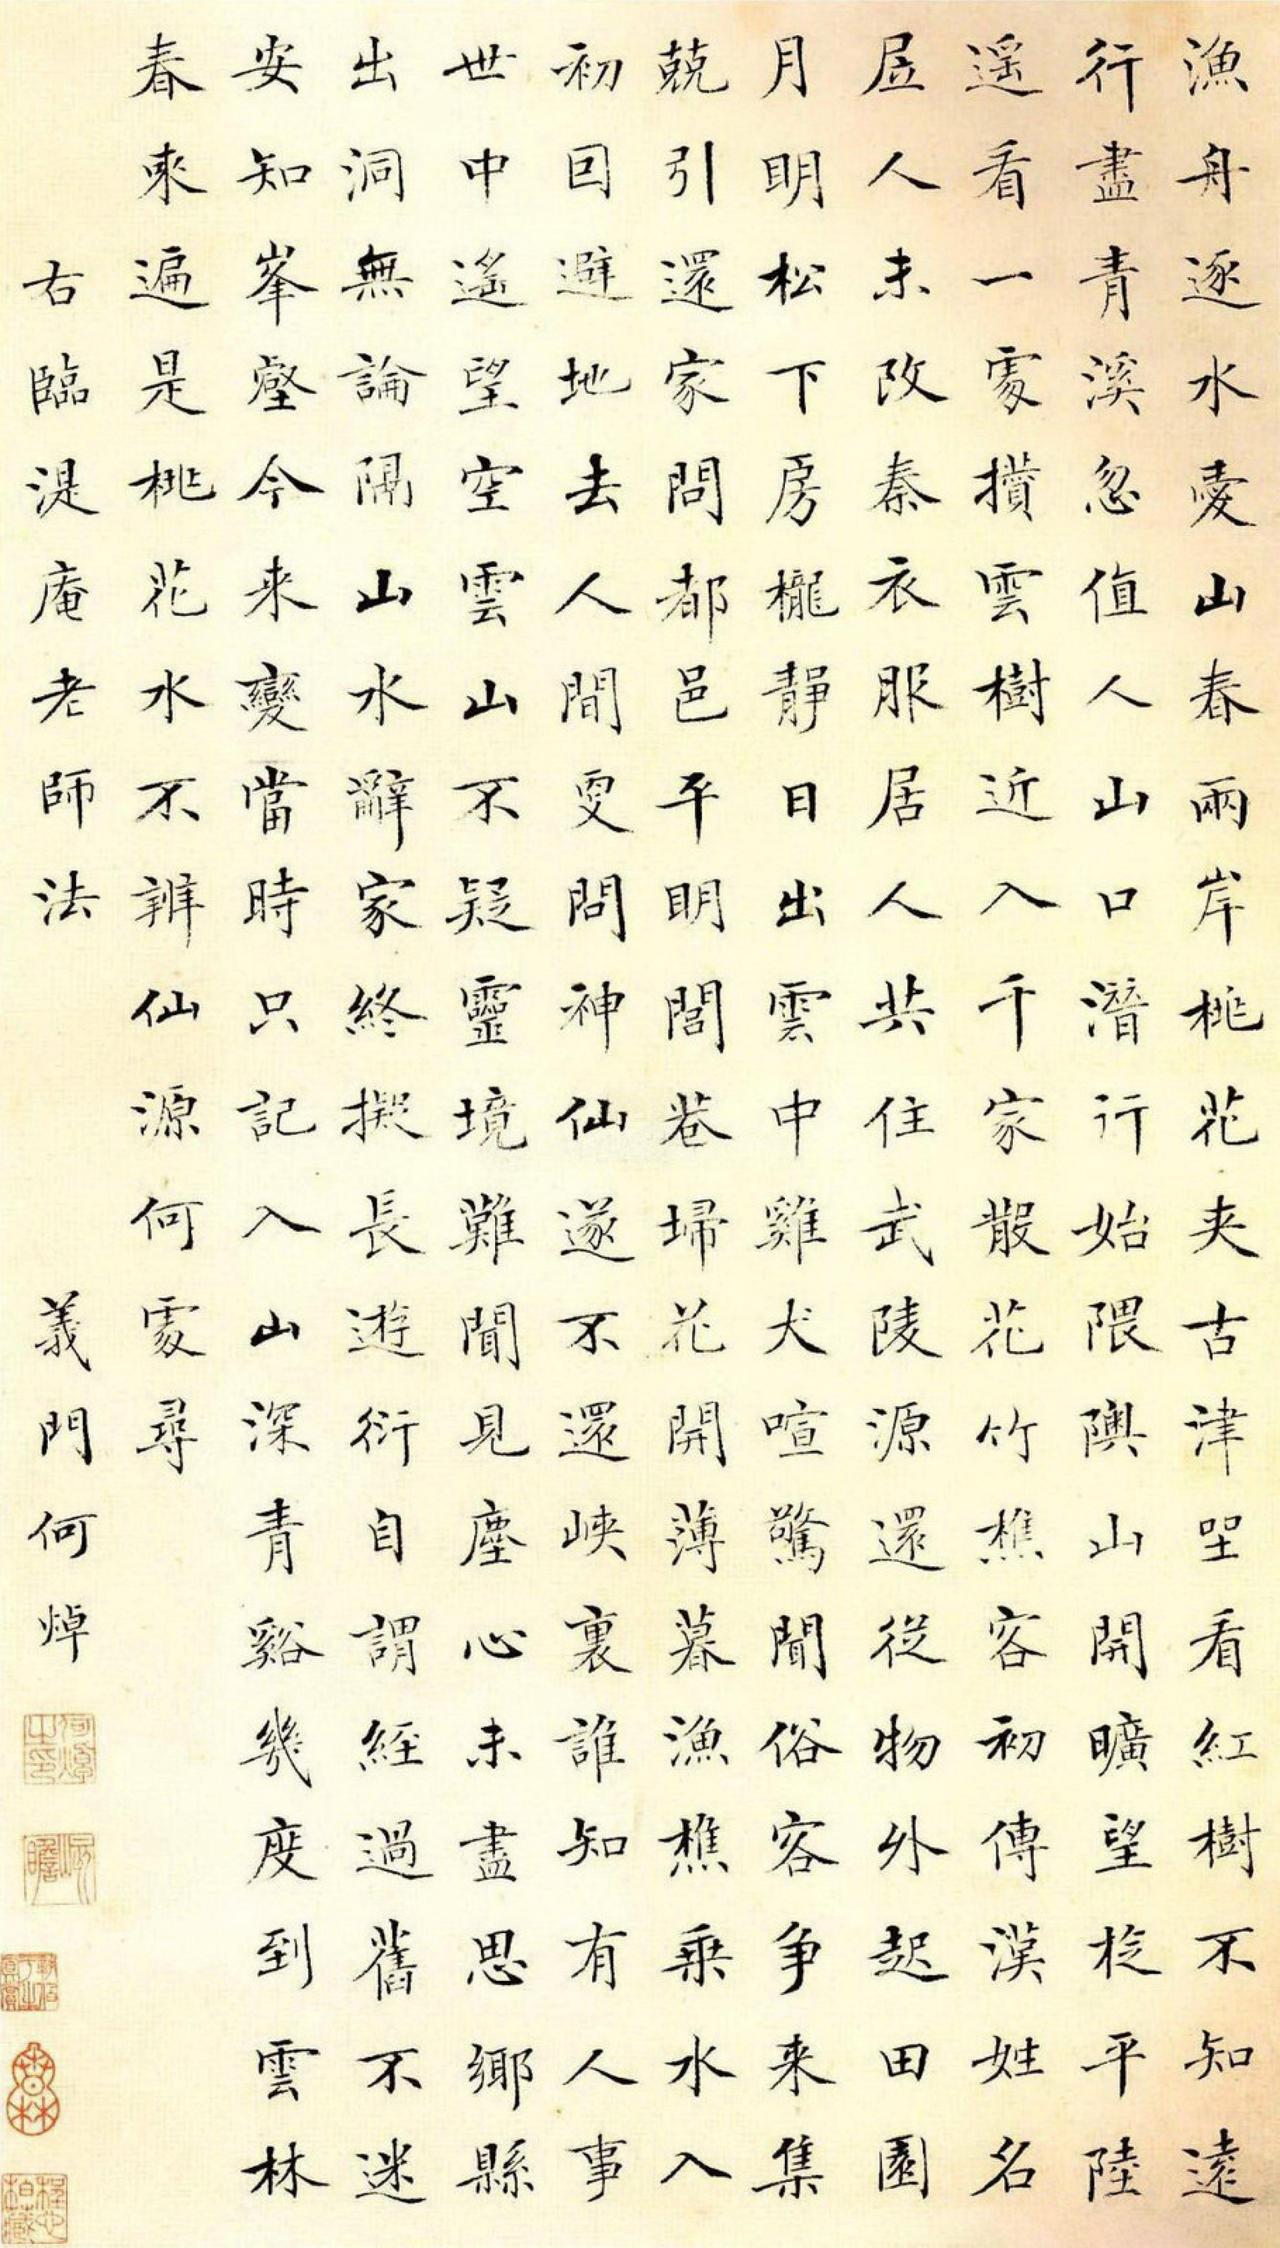 漁舟逐水愛山春兩岸桃花夾古津坐看紅樹不知遠
行盡青溪忽值人山口潛行始隈隩山開曠望旋平陸
遥看一處攢雲樹近入千家散花竹樵客初傳漢姓名
居人未改秦衣服居人共住武陵源還從物外起田園
月明松下房櫳靜日出雲中雞犬喧驚聞俗客爭来集
兢引還家問都邑平明閭巷埽花開薄暮漁樵乗水入
初回避地去人間更問神仙遂不還峽裏誰知有人事
世中遥望空雲山不疑靈境難聞見塵心未盡思鄉縣
出洞無論隔山水辭家終擬長遊衍自謂經過舊不迷
安知峯壑今来變當時只記入山深青谿幾度到雲林
春來遍是桃花水不辨仙源何處尋
右臨湜庵老師法
義門何焯